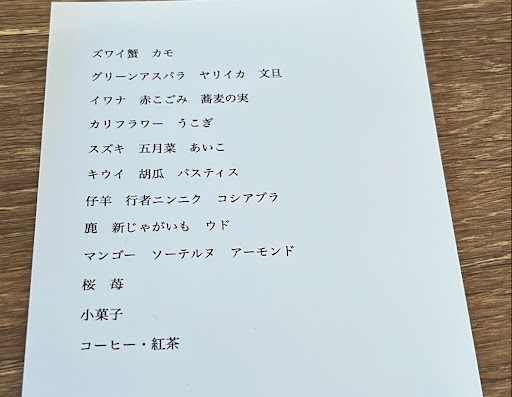 ズワイ蟹　カモ
グリーンアスパラ　ヤリイカ　文旦
イワナ　赤こごみ　蕎麦の実
カリフラワー　うこぎ
スズキ　五月菜　あいこ
キウイ　胡瓜　パスティス
仔羊　行者ニンニク　コシアブラ
鹿　新じゃがいも　ウド
マンゴー　ソーテルヌ　アーモンド
桜　苺
小菓子
コーヒー・紅茶